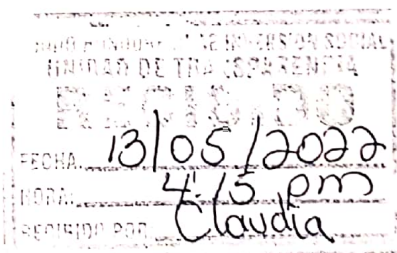 INVERSION SOCIAL
UNIDAD DE TRANSPARENCIA
RECIBIDO
FECHA 13/05/2022
HORA: 4:15 pm
RECIBIDO POR Claudia